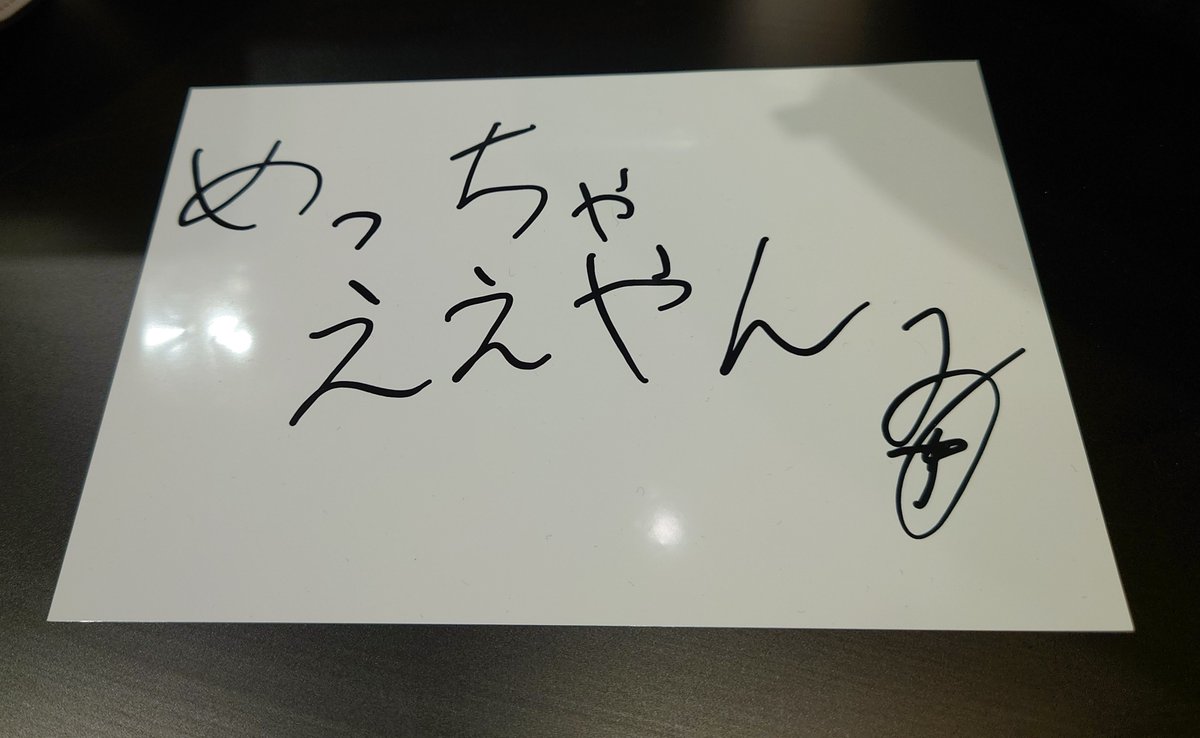 めっちゃ
ええやん